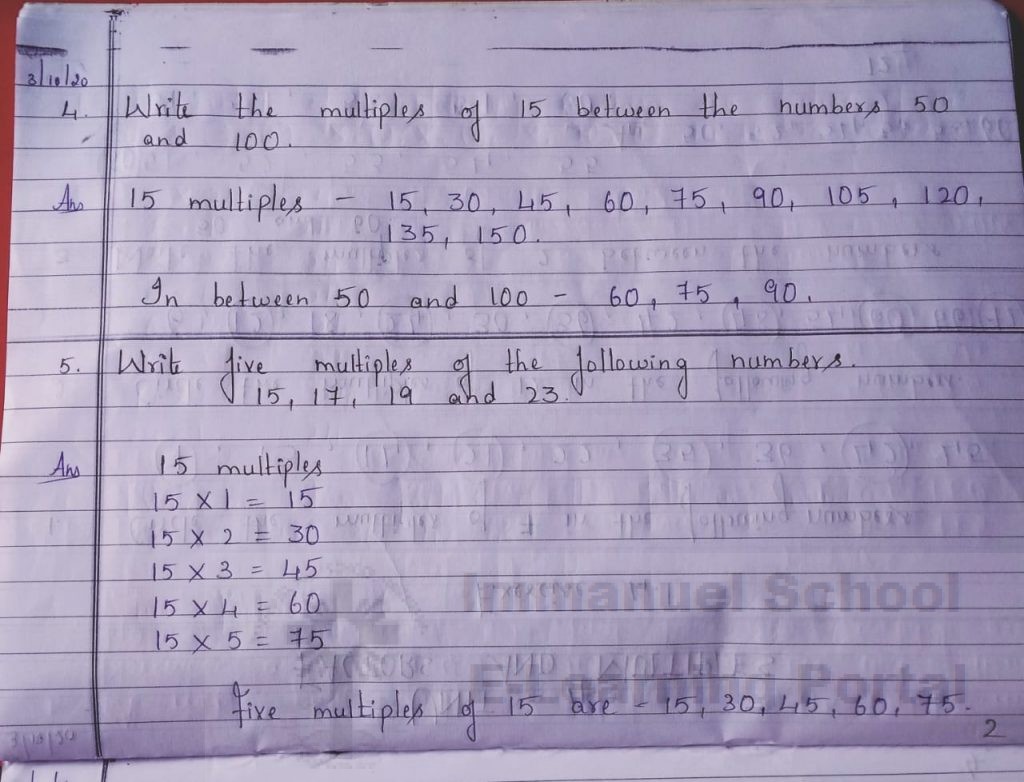 3/10/20
4. Write the multiples of 15 between the numbers 50
and 100.
Ans 15 multiples - 15, 30, 45, 60, 75, 90, 105, 120,
135, 150.
In between 50 and 100 - 60, 75, 90.
5. Write five multiples of the following numbers.
15, 17, 19 and 23.
Ans 15 multiples
15 x 1 = 15
15 x 2 = 30
15 x 3 = 45
15 x 4 = 60
Immanuel School
15 x 5 = 75
E-Learning Portal
Five multiples of 15 are - 15, 30, 45, 60, 75.
2